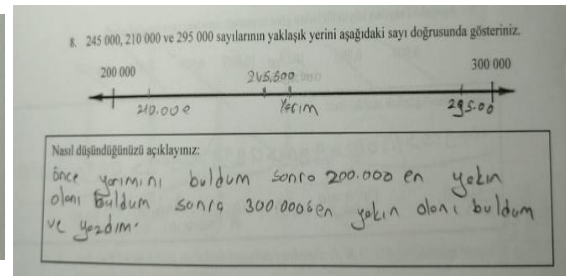 8. 245 000, 210 000 ve 295 000 sayılarının yaklaşık yerini aşağıdaki sayı doğrusunda gösteriniz.
200 000 245.500 300 000
210.000 Yarım 295.00
Nasıl düşündüğünüzü açıklayınız:
önce yarımını buldum sonra 200.000 en yakın
olanı buldum sonra 300.000 en yakın olanı buldum
ve yazdım.